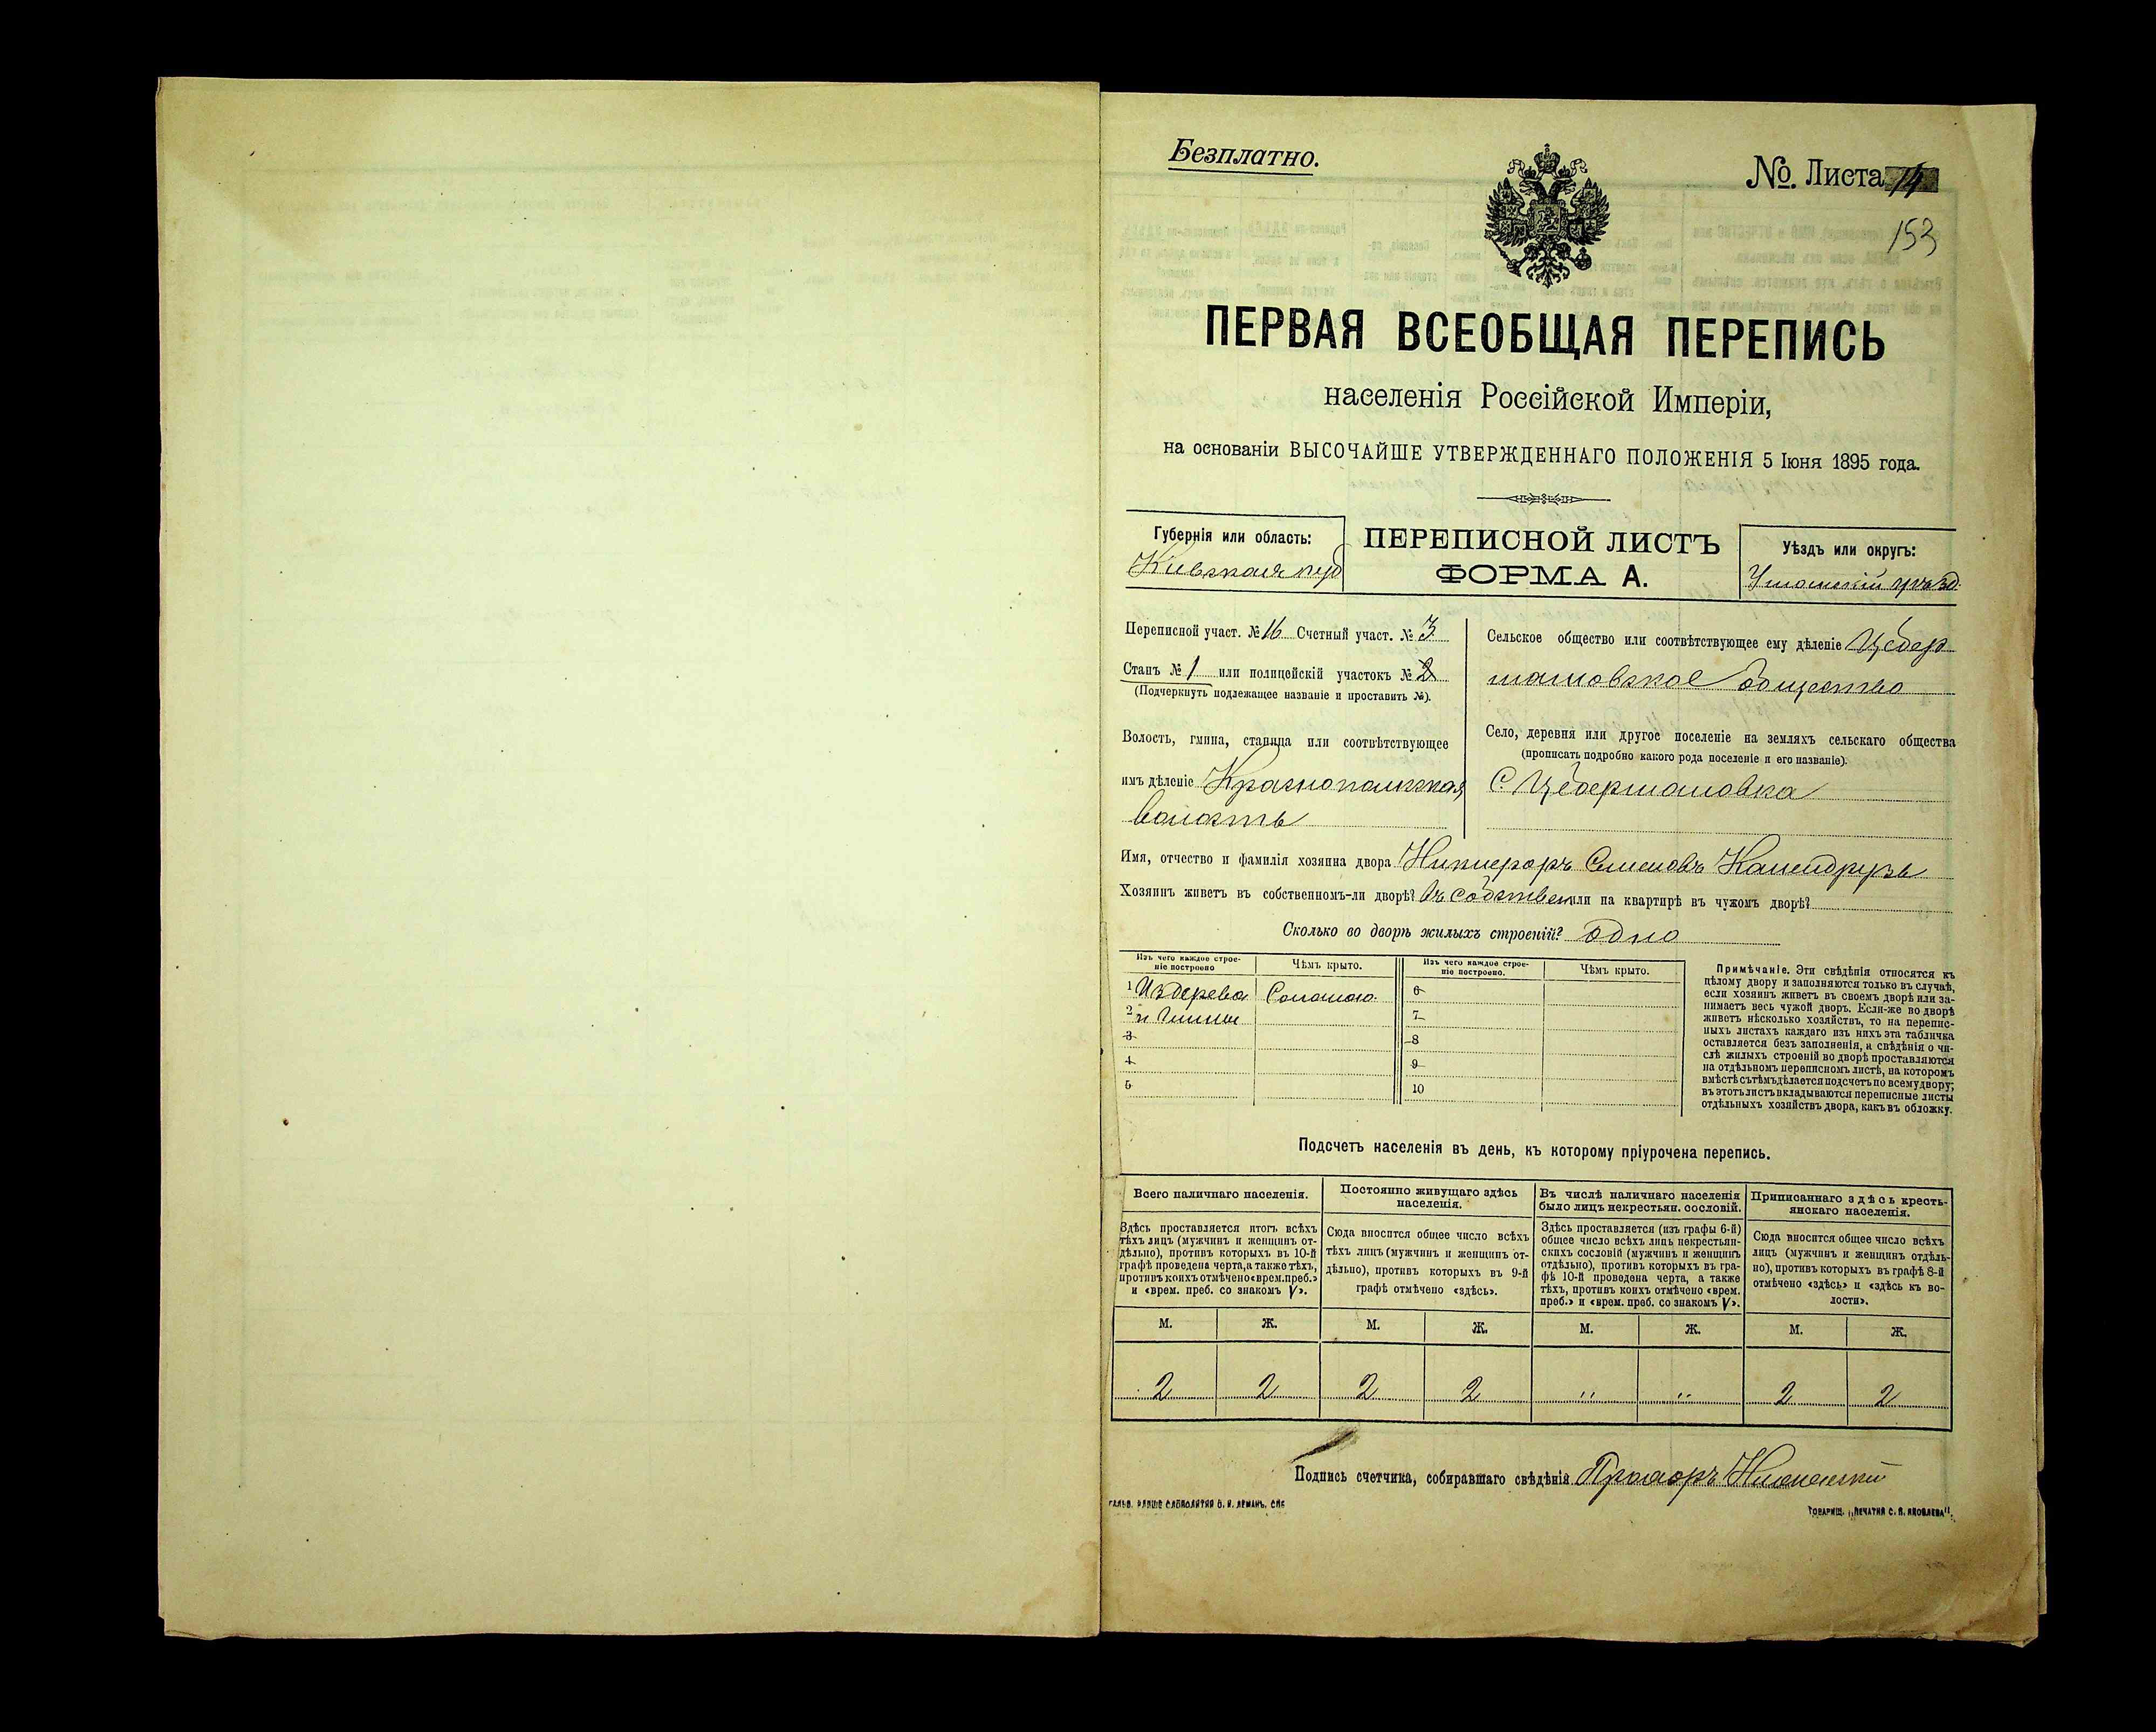 Безплатно.
№. Листа 14
153
ПЕРВАЯ ВСЕОБЩАЯ ПЕРЕПИСЬ
населенія Россійской Имперіи,
на основаніи ВЫСОЧАЙШЕ УТВЕРЖДЕННАГО ПОЛОЖЕНІЯ 5 Іюня 1895 года.
Губернія или область:
Кіевская губ
ПЕРЕПИСНОЙ ЛИСТЪ
ФОРМА А.
Уѣздъ или округъ:
Уманскій уѣзд.
Переписной участ. № 16 Счетный участ. № 3
Станъ № 1 или полицейскій участокъ № 2
(Подчеркнуть подлежащее названіе и проставить №).
Волость, гмина, станица или соотвѣтствующее
имъ дѣленіе Краснопольская
волость
Сельское общество или соотвѣтствующее ему дѣленіе Цебер
мановское Общество
Село, деревня или другое поселеніе на земляхъ сельскаго общества
(прописать подробно какого рода поселеніе и его названіе).
С. Цебермановка
Имя, отчество и фамилія хозяина двора Никифоръ Семеновъ
Хозяинъ живетъ въ собственномъ-ли дворѣ? Въ собствен или на квартирѣ въ чужомъ дворѣ?
Сколько во дворѣ жилыхъ строеній? Одно
Изъ чего каждое строе-
ніе построено
Чѣмъ крыто.
Изъ чего каждое строе-
ніе построено.
Чѣмъ крыто.
1 Из дерева Соломою
2 и глины
3
4
5
6
7
8
9
10
Примѣчаніе. Эти свѣдѣнія относятся къ
цѣлому двору и заполняются только въ случаѣ,
если хозяинъ живетъ въ своемъ дворѣ или за-
нимаетъ весь чужой дворъ. Если-же во дворѣ
живетъ нѣсколько хозяйствъ, то на перепис-
ныхъ листахъ каждаго изъ нихъ эта табличка
оставляется безъ заполненія, а свѣдѣнія о чи-
слѣ жилыхъ строеній во дворѣ проставляются
на отдѣльномъ переписномъ листѣ, на которомъ
вмѣстѣ съ тѣмъ дѣлается подсчетъ по всему двору;
въ этотъ листъ вкладываются переписные листы
отдѣльныхъ хозяйствъ двора, какъ въ обложку.
Подсчетъ населенія въ день, къ которому пріурочена перепись.
Всего наличнаго населенія.
Здѣсь проставляется итогъ всѣхъ
тѣхъ лицъ (мужчинъ и женщинъ от-
дѣльно), противъ которыхъ въ 10-й
графѣ проведена черта, а также тѣхъ,
противъ коихъ отмѣчено «врем. преб.»
и «врем. преб. со знакомъ V».
Постоянно живущаго здѣсь
населенія.
Сюда вносится общее число всѣхъ
тѣхъ лицъ (мужчинъ и женщинъ от-
дѣльно), противъ которыхъ въ 9-й
графѣ отмѣчено «здѣсь».
Въ числѣ наличнаго населенія
было лицъ некрестьян. сословій.
Здѣсь проставляется (изъ графы 6-й)
общее число всѣхъ лицъ некрестьян-
скихъ сословій (мужчинъ и женщинъ
отдѣльно), противъ которыхъ въ гра-
фѣ 10-й проведена черта, а также
тѣхъ, противъ коихъ отмѣчено «врем.
преб.» и «врем. преб. со знакомъ V».
Приписаннаго здѣсь кресть-
янскаго населенія.
Сюда вносится общее число всѣхъ
лицъ (мужчинъ и женщинъ отдѣль-
но), противъ которыхъ въ графѣ 8-й
отмѣчено «здѣсь» и «здѣсь къ во-
лости».
М. Ж. М. Ж. М. Ж. М. Ж.
2 2 2 2 " " 2 2
Подпись счетчика, собиравшаго свѣдѣнія
ТОВАРИЩ. „ПЕЧАТНЯ С. П. ЯКОВЛЕВА".